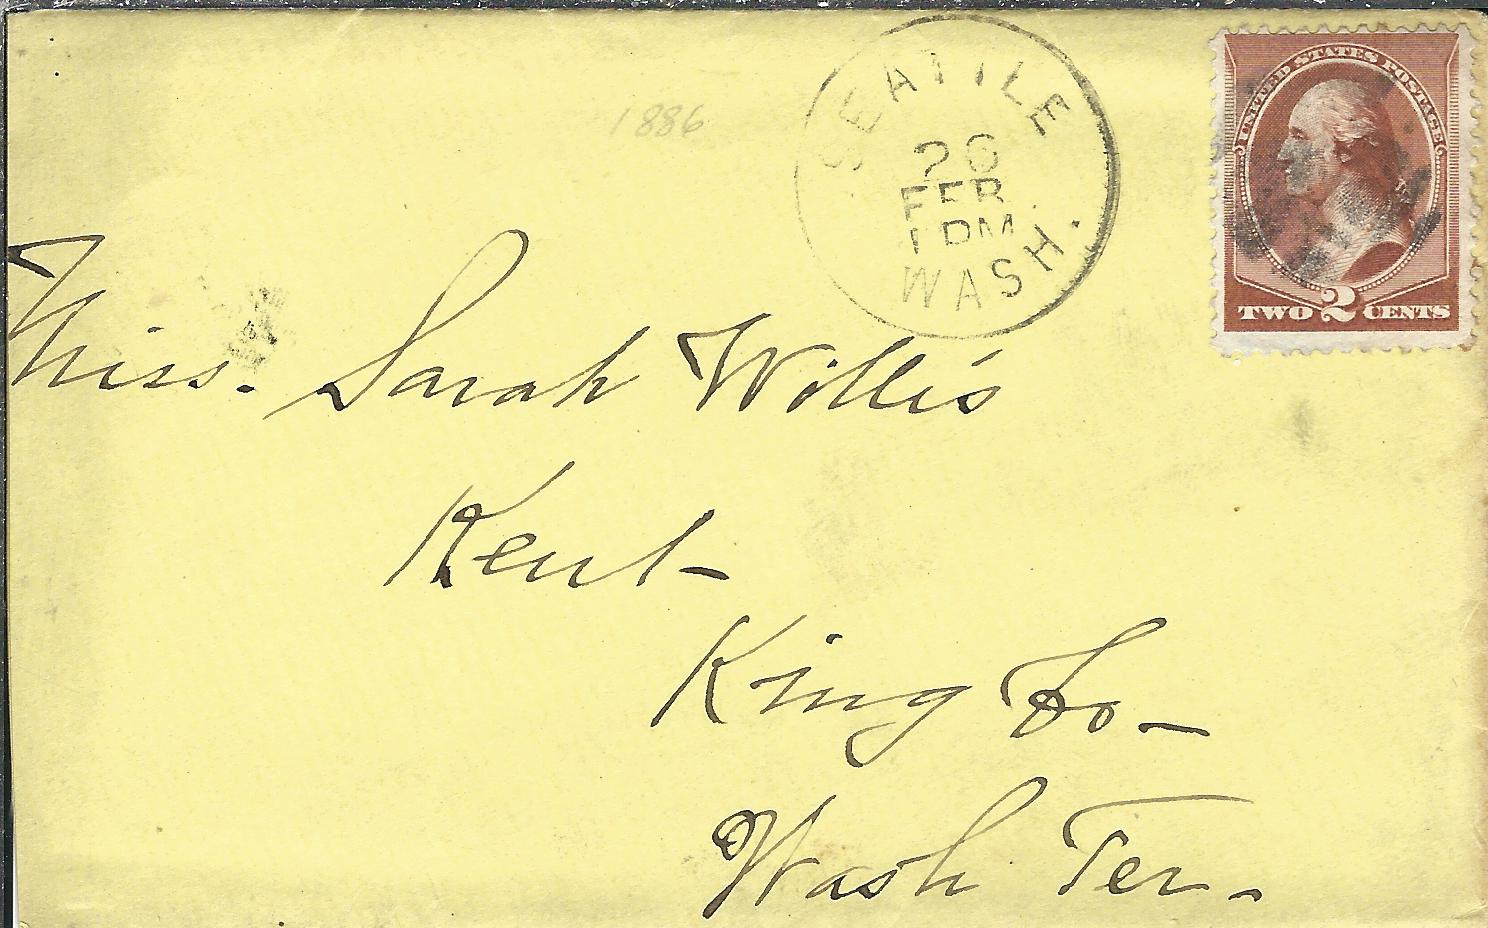 1886
SEATTLE
26
FEB
1 PM
WASH.
UNITED STATES POSTAGE
TWO 2 CENTS
Miss. Sarah Willis
Kent
King Co
Wash Ter.